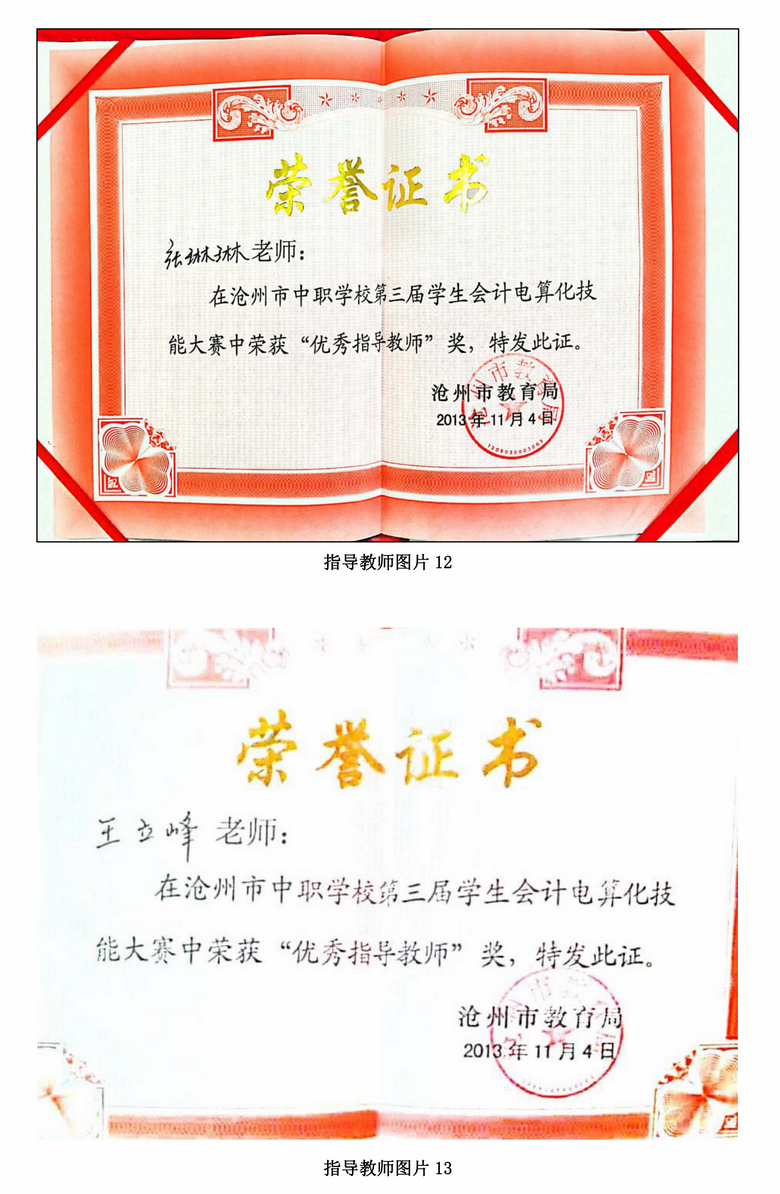 荣誉证书
张琳琳老师：
在沧州市中职学校第三届学生会计电算化技
能大赛中荣获“优秀指导教师”奖，特发此证。
沧州市教育局
2013年11月4日
指导教师图片 12
荣誉证书
王立峰 老师：
在沧州市中职学校第三届学生会计电算化技
能大赛中荣获“优秀指导教师”奖，特发此证。
沧州市教育局
2013年11月4日
指导教师图片 13